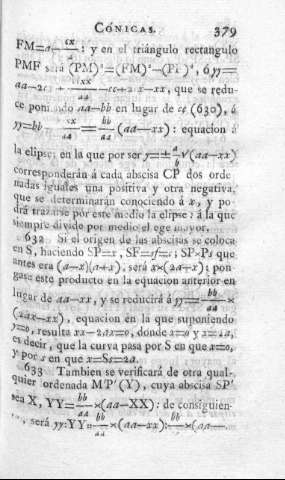 CÓNICAS. 379
FM=a-cx/a : y en el triángulo rectangulo
PMF será (PM)²=(FM)²-(PF)², ó yy=
aa-2cx+ccxx/aa -cc+2cx-xx, que se redu-
ce poniendo aa-bb en lugar de cc (630), á
yy=bb = bb/aa (aa-xx) : equacion á
la elipse; en la que por ser y=± √(aa-xx)
corresponderán á cada abscisa CP dos orde-
nadas iguales una positiva y otra negativa,
que se determinarán conociendo á x, y po-
drá trazarse por este medio la elipse : á la que
siempre divide por medio el ege mayor.
632 Si el origen de las abscisas se coloca
en S, haciendo SP=x, SF=sf=c; SP×Ps que
antes era (a-x)(a+x), será x×(2a+x); pon-
gase este producto en la equacion anterior en
lugar de aa-xx, y se reducirá á yy=bb/aa ×
(2ax-xx), equacion en la que suponiendo
y=0, resulta xx-2ax=0, donde x=0 y x=2a,
es decir, que la curva pasa por S en que x=0,
y por s en que x=Ss=2a.
633 Tambien se verificará de otra qual-
quier ordenada M'P' (Y), cuya abscisa SP'
sea X, YY=bb/aa ×(aa-XX) : de consiguien-
será yy:YY=bb/aa ×(aa-xx):bb/aa ×(aa-